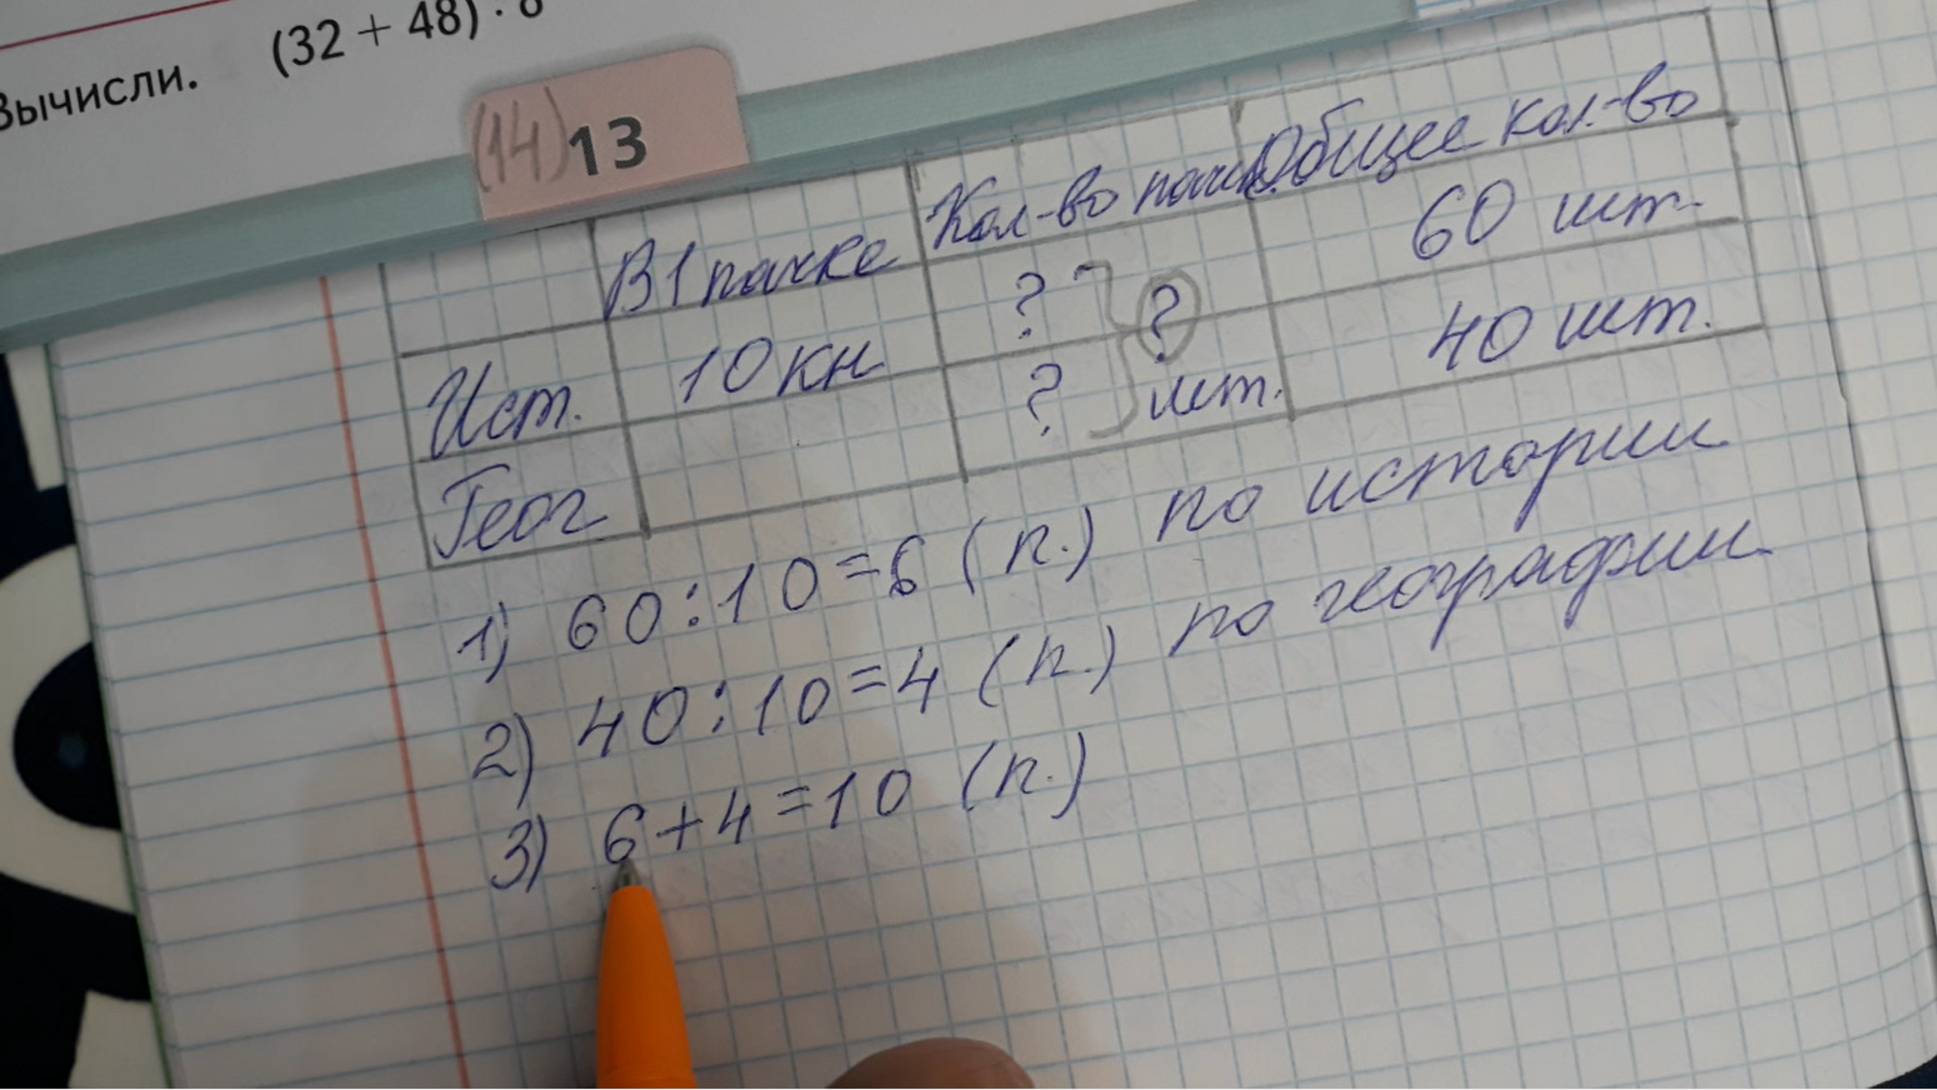 Вычисли. (32 + 48) · 8
(14) 13
В 1 пачке Кол-во пачек Общее кол-во
Ист. 10 кн ? ? 60 шт.
Геог ? шт. 40 шт.
1) 60:10=6 (п.) по истории
2) 40:10=4 (п.) по географии
3) 6+4=10 (п.)